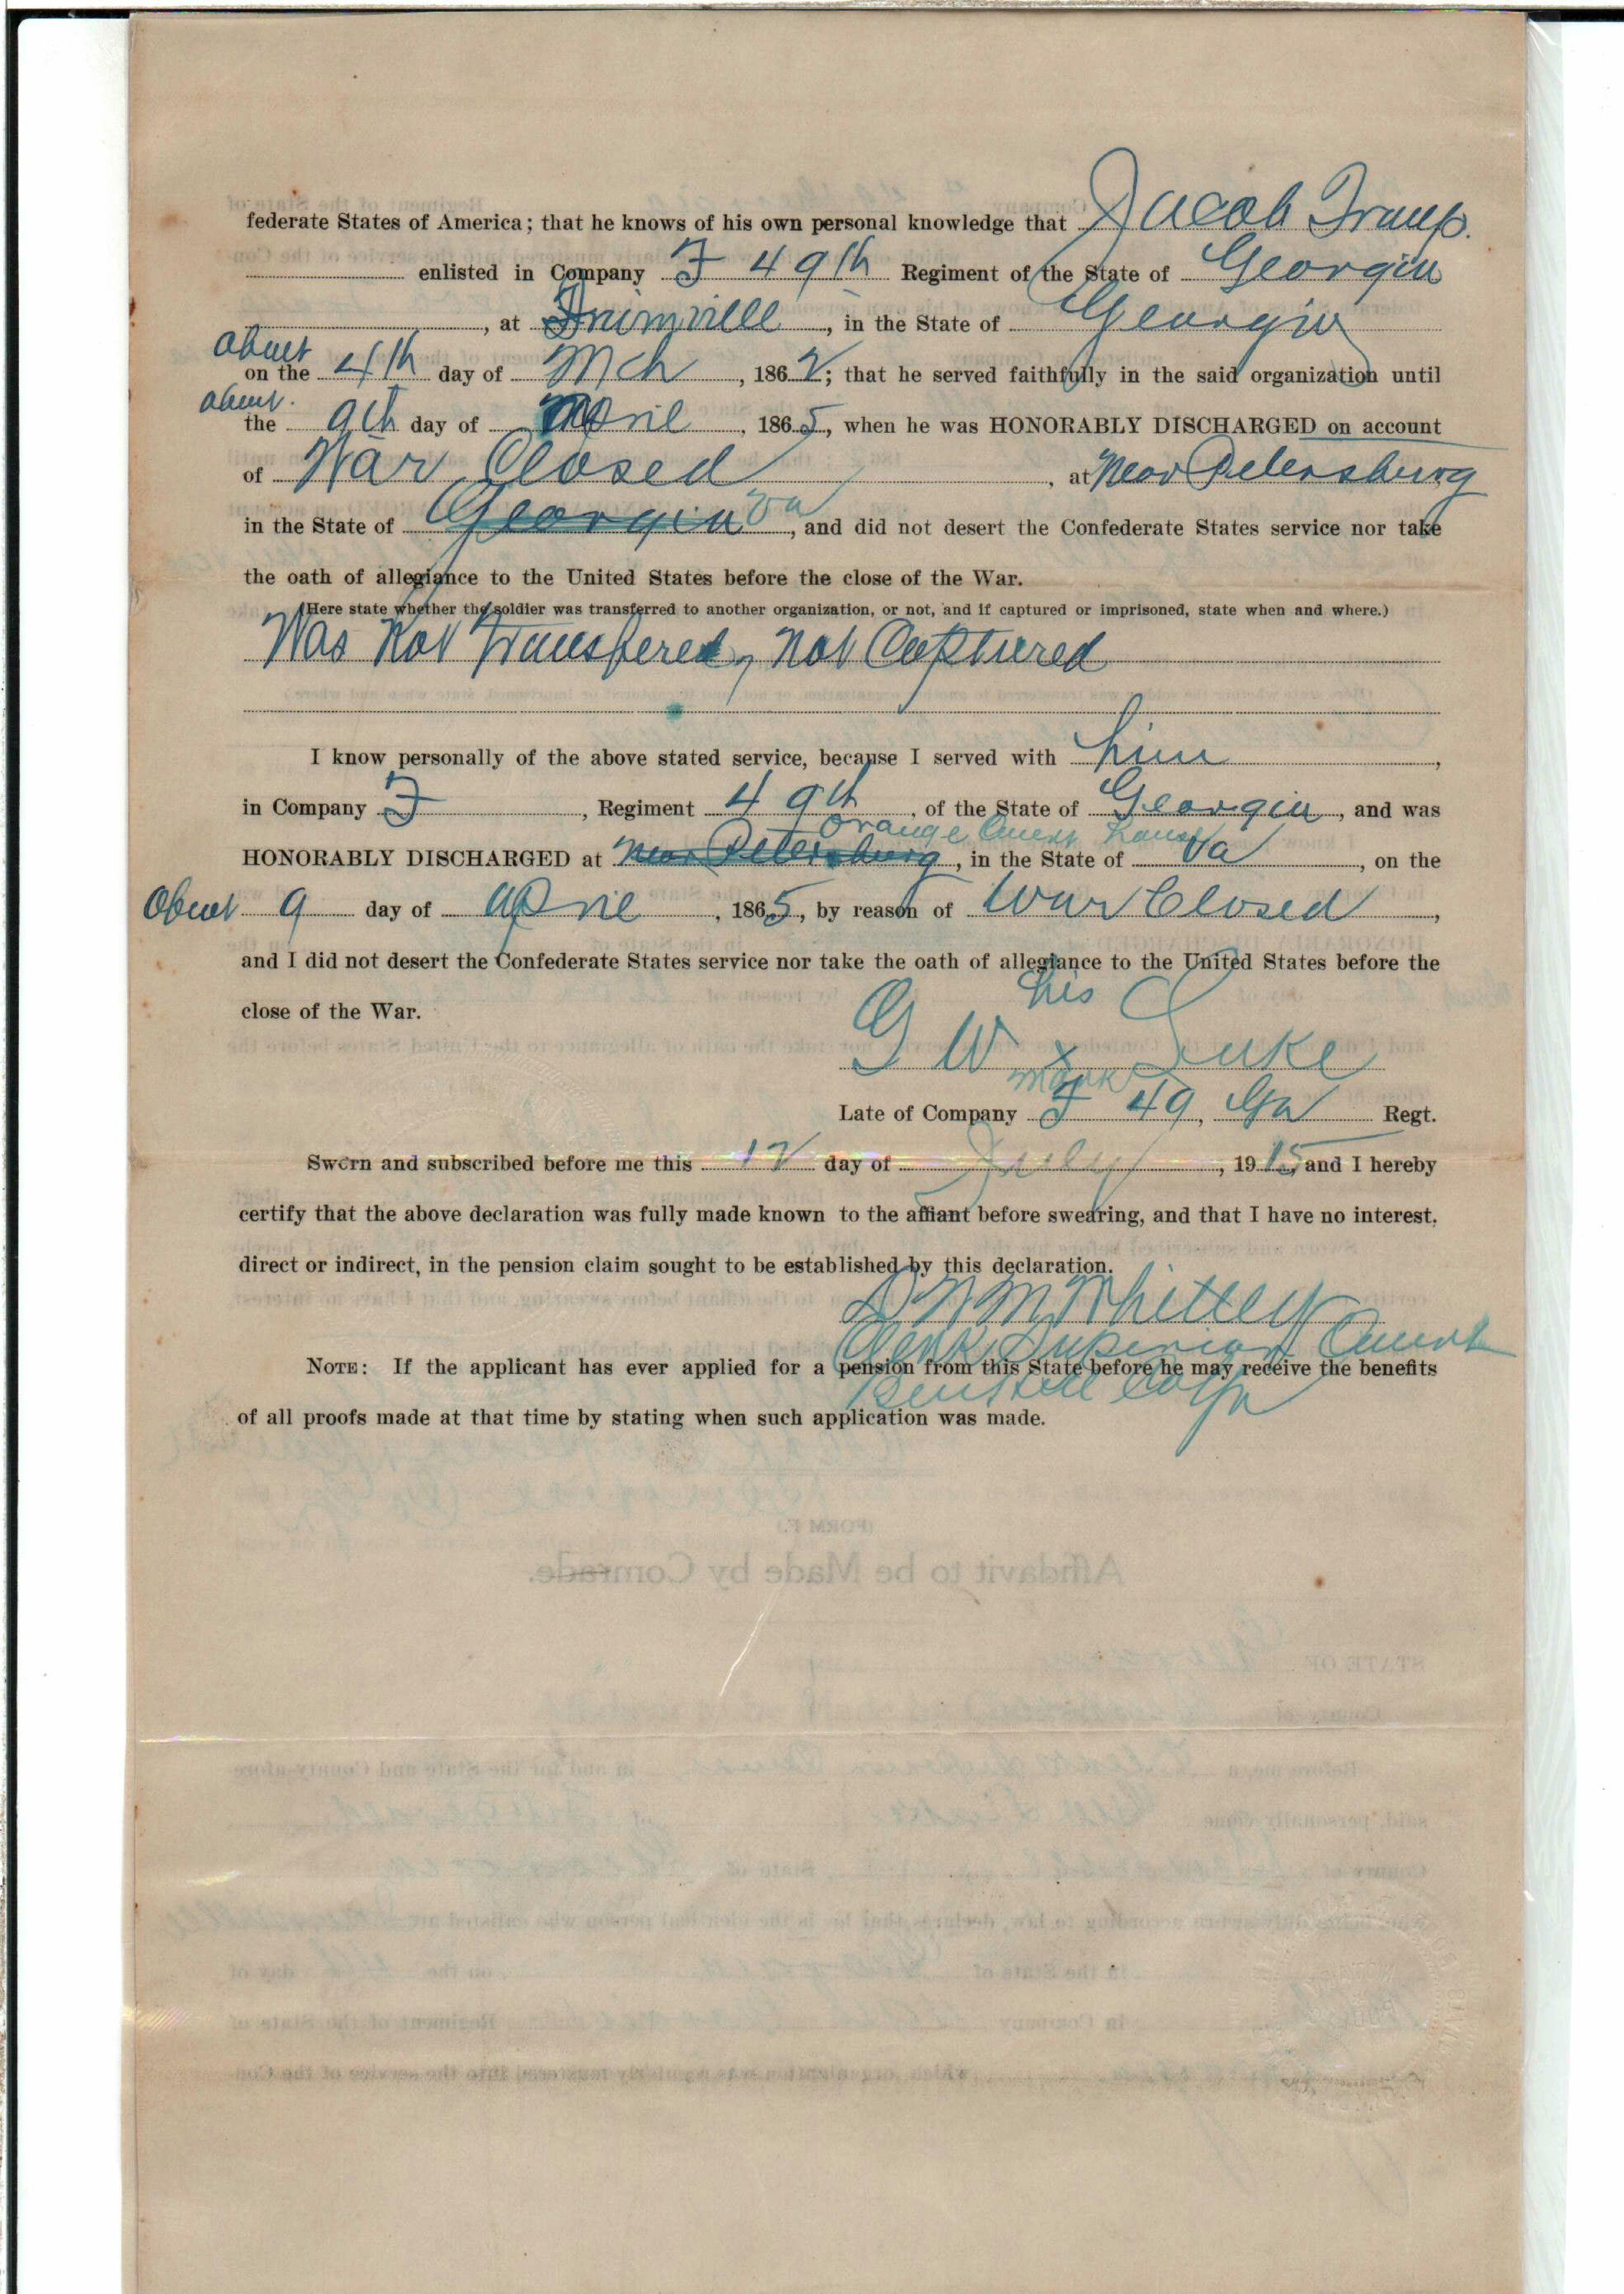 federate States of America; that he knows of his own personal knowledge that Jacob Traup.
enlisted in Company F 49th Regiment of the State of Georgia
, at Irwinville, in the State of Georgia
about
on the 4th day of Mch, 1862; that he served faithfully in the said organization until
about.
the 9th day of April, 1865, when he was HONORABLY DISCHARGED on account
of War Closed, at Near Petersburg
in the State of Georgia Va, and did not desert the Confederate States service nor take
the oath of allegiance to the United States before the close of the War.
(Here state whether the soldier was transferred to another organization, or not, and if captured or imprisoned, state when and where.)
Was Not Transfered, Not Captured
I know personally of the above stated service, because I served with him,
in Company F, Regiment 49th, of the State of Georgia, and was
Orange Court House
HONORABLY DISCHARGED at Near Petersburg, in the State of Va, on the
About 9 day of April, 1865, by reason of War Closed,
and I did not desert the Confederate States service nor take the oath of allegiance to the United States before the
close of the War.
his
G W x Luke
mark
Late of Company F 49, Ga Regt.
Sworn and subscribed before me this 12 day of July, 1915, and I hereby
certify that the above declaration was fully made known to the affiant before swearing, and that I have no interest,
direct or indirect, in the pension claim sought to be established by this declaration.
Whitley
Clerk Superior Court
NOTE: If the applicant has ever applied for a pension from this State before he may receive the benefits
Co Ga
of all proofs made at that time by stating when such application was made.
(FORM F.)
Affidavit to be Made by Comrade.